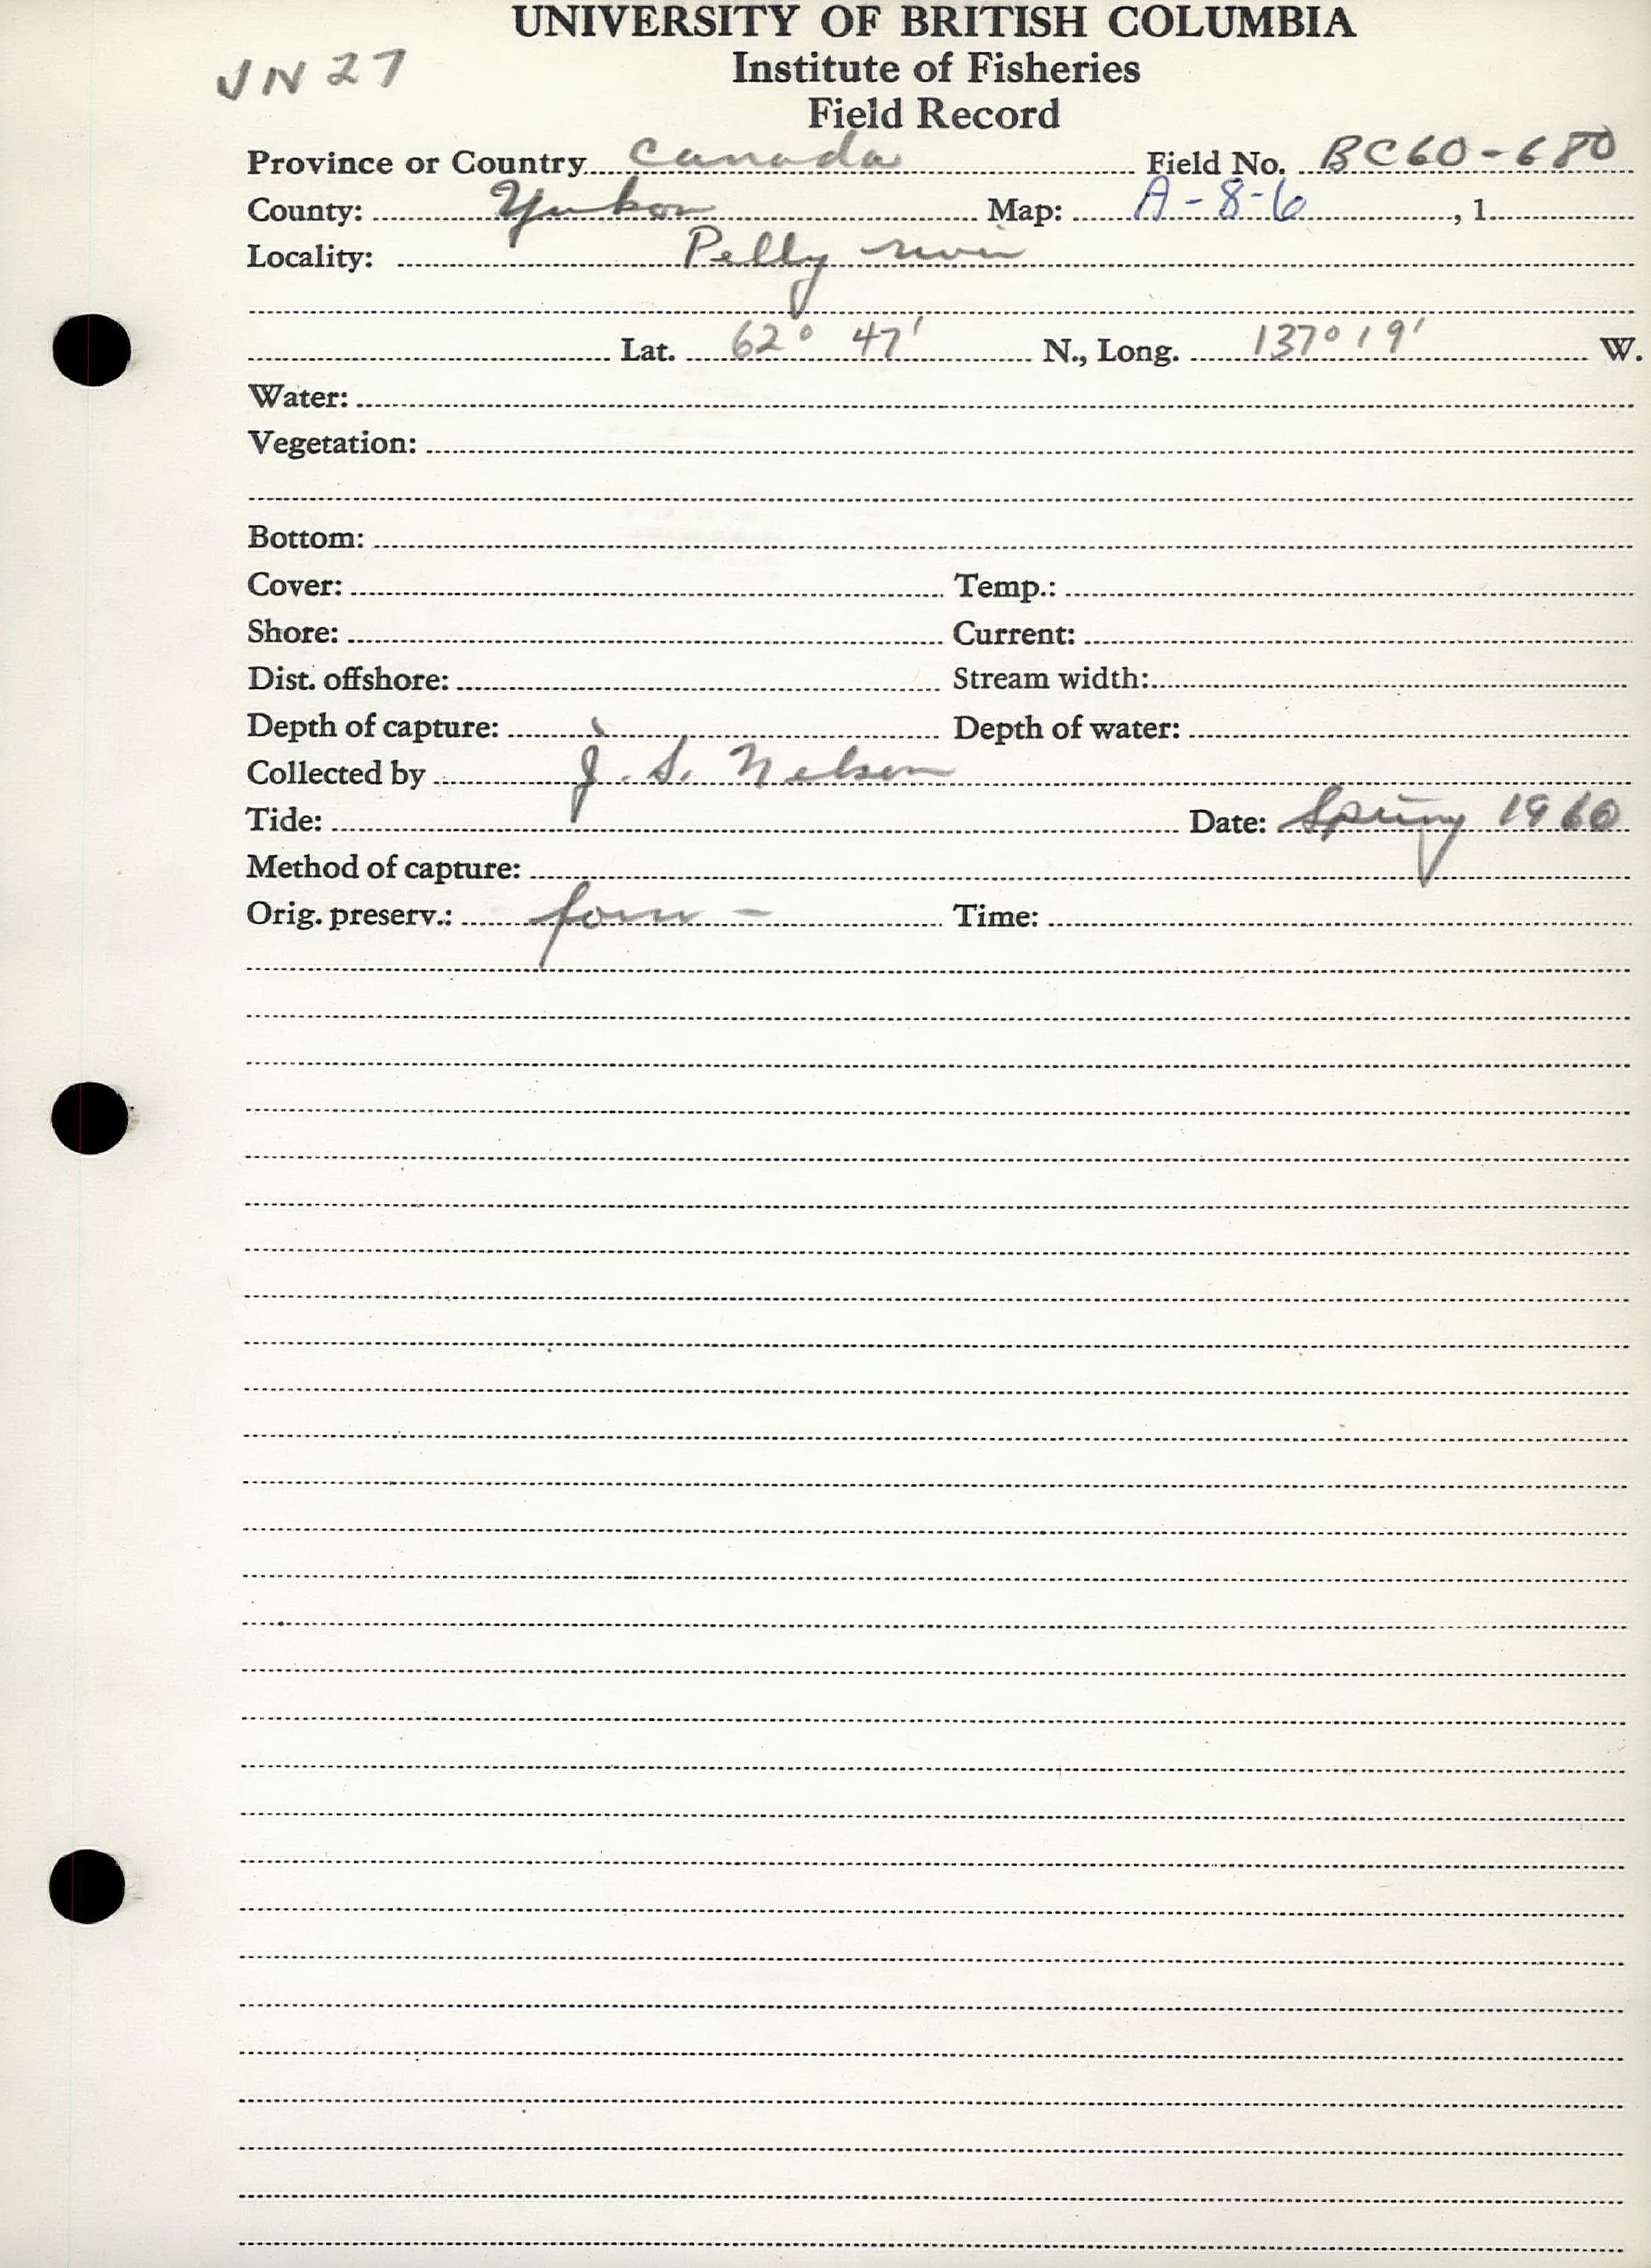 UNIVERSITY OF BRITISH COLUMBIA
JN 27
Institute of Fisheries
Field Record
Province or Country Canada Field No. BC60-680
County: Yukon Map: A-8-6, 1
Locality: Pelly river
Lat. 62° 47' N., Long. 137° 19' W.
Water:
Vegetation:
Bottom:
Cover: Temp.:
Shore: Current:
Dist. offshore: Stream width:
Depth of capture: Depth of water:
Collected by J. S. Nelson
Tide: Date: Spring 1960
Method of capture:
Orig. preserv.: form - Time: